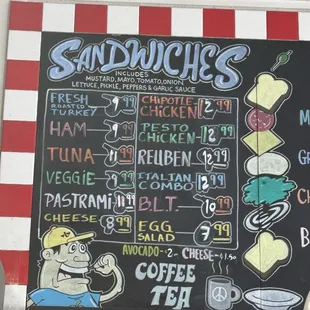 SANDWICHES
INCLUDES
MUSTARD, MAYO, TOMATO, ONION
LETTUCE, PICKLE, PEPPERS & GARLIC SAUCE
FRESH ROASTED TURKEY 9.99
HAM 9.99
TUNA 11.99
VEGGIE 9.99
PASTRAMI 11.99
CHEESE 8.99
CHIPOTLE CHICKEN 12.99
PESTO CHICKEN 12.99
REUBEN 12.99
ITALIAN COMBO 12.99
B.L.T. 10.99
EGG SALAD 7.99
AVOCADO - 2 - CHEESE - $1.50
COFFEE
TEA